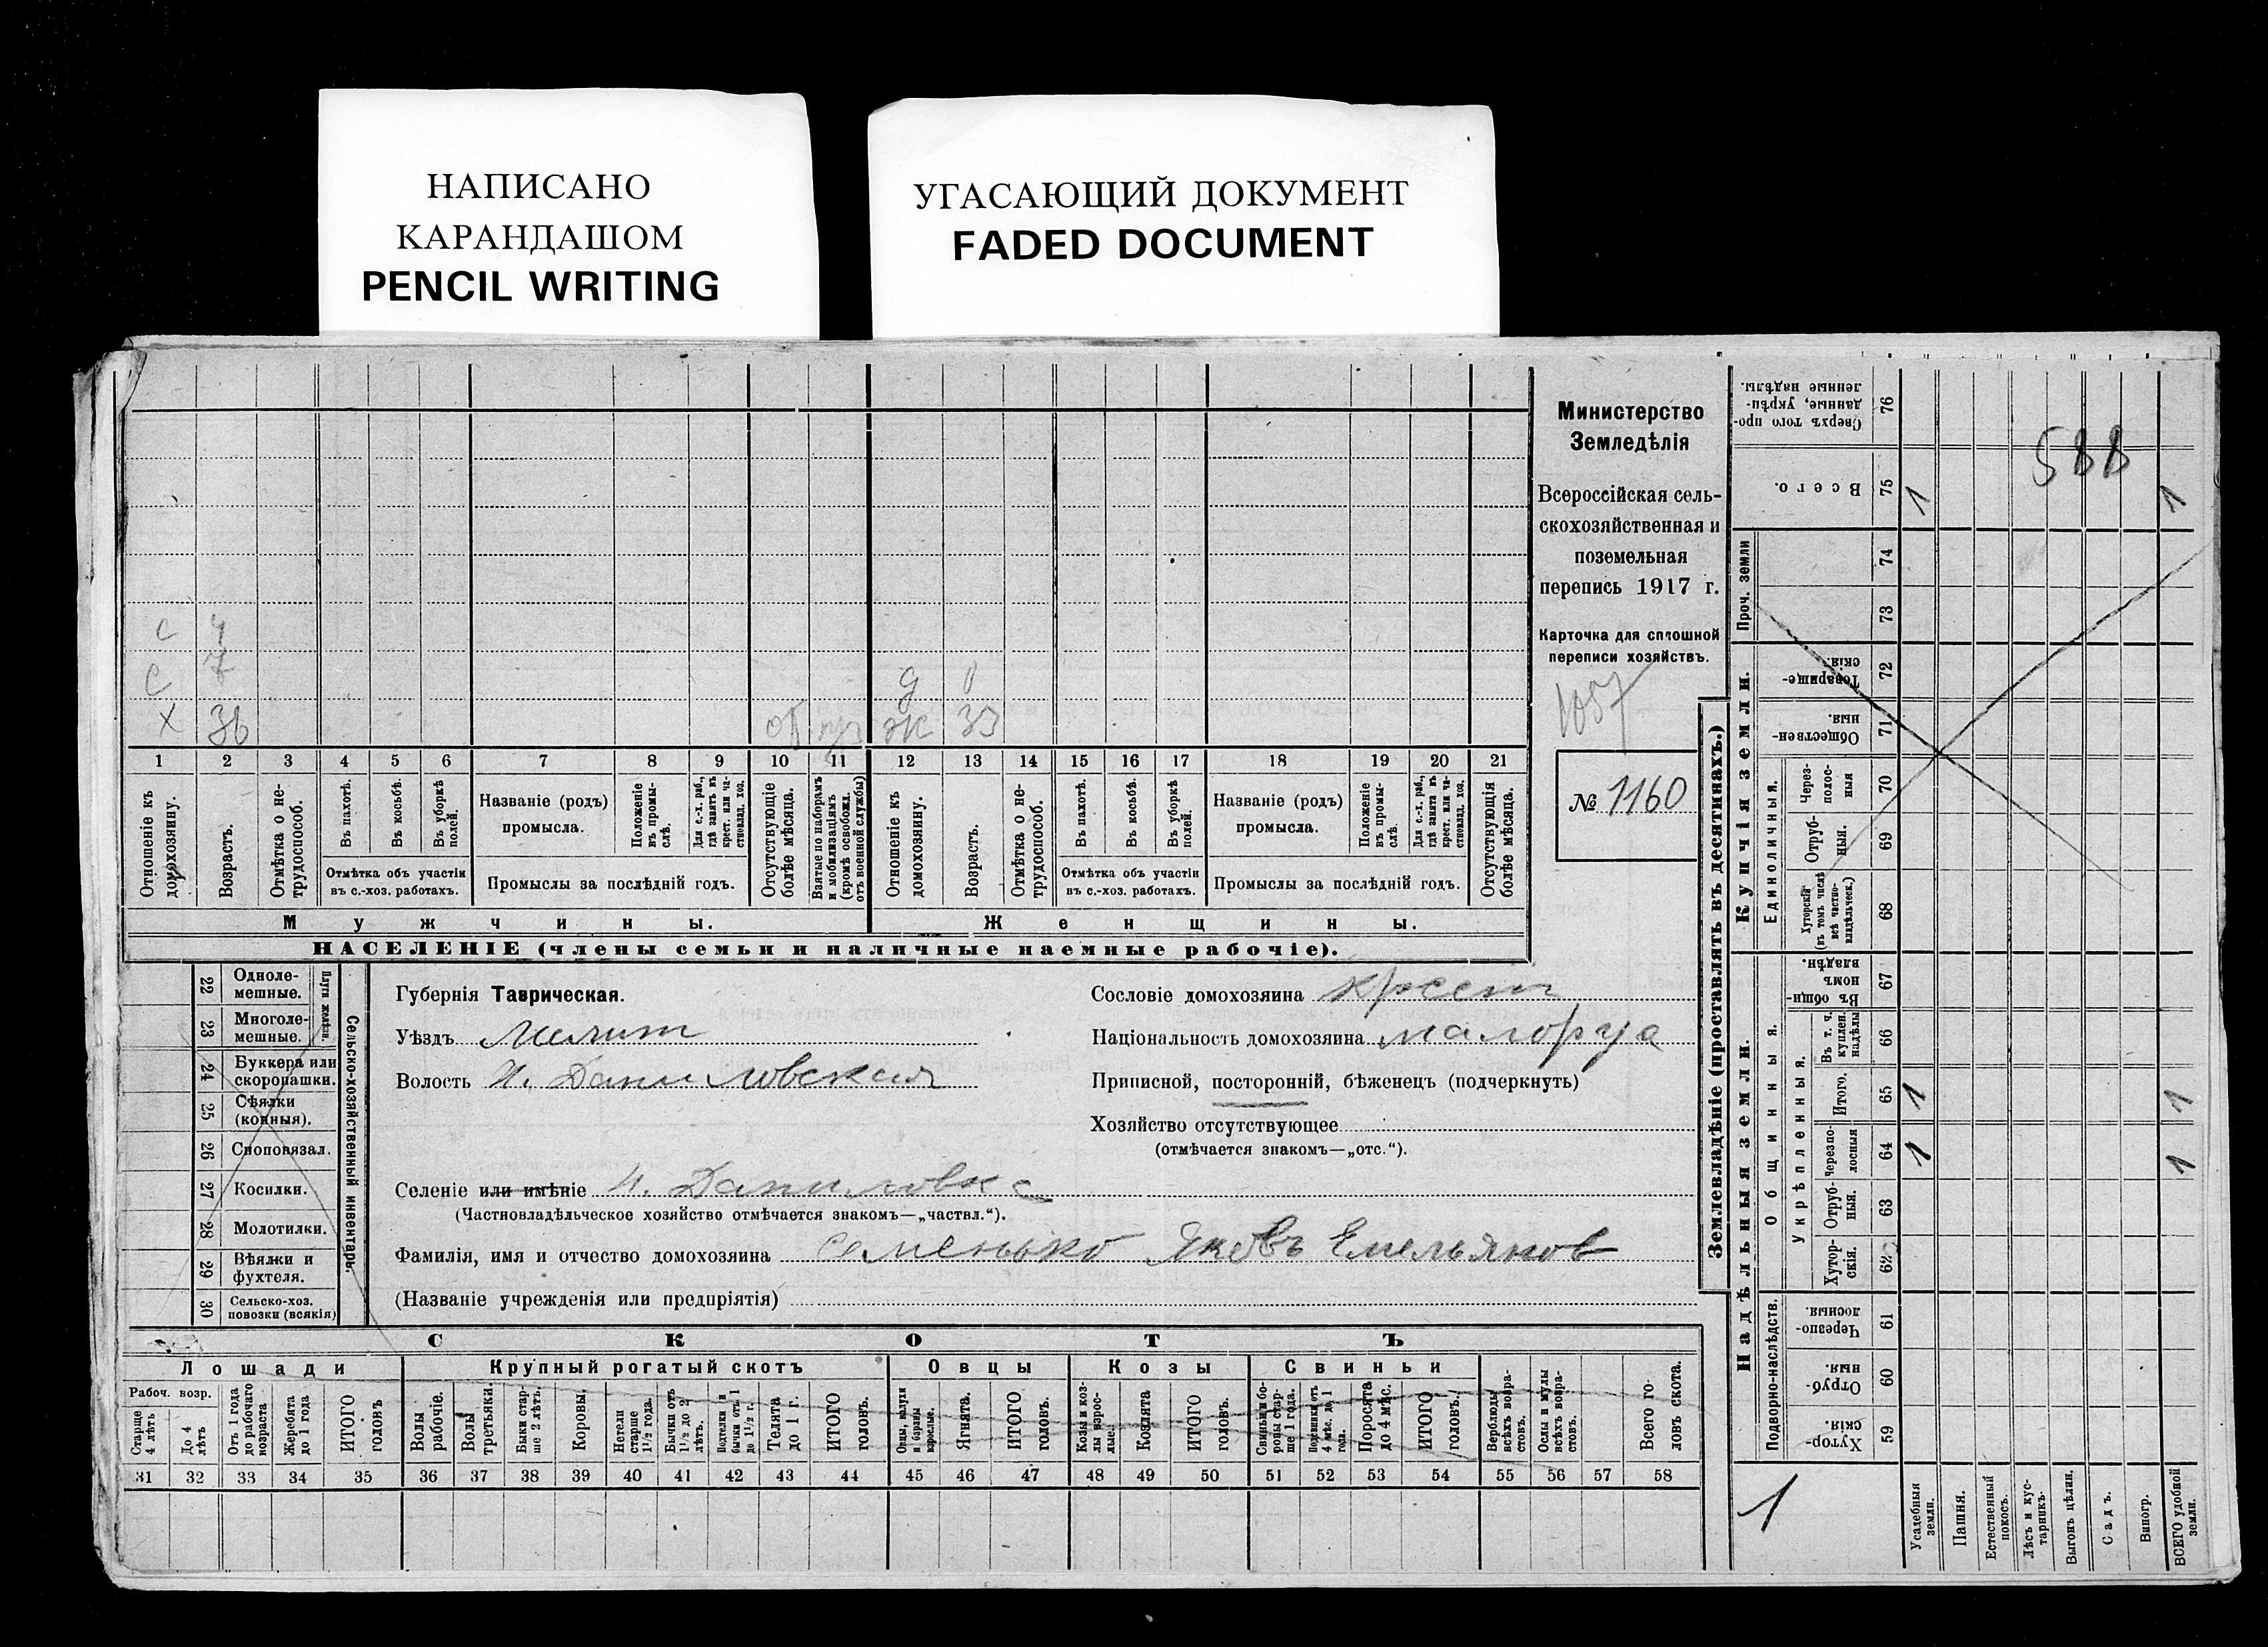 НАПИСАНО
КАРАНДАШОМ
PENCIL WRITING
УГАСАЮЩИЙ ДОКУМЕНТ
FADED DOCUMENT
Министерство
Земледѣлія
Всероссійская сель-
скохозяйственная и
поземельная
перепись 1917 г.
Карточка для сплошной
переписи хозяйствъ.
1057
№ 1160
с 4
с 7 д 0
х 36 ж 33
1 2 3 4 5 6 7 8 9 10 11 12 13 14 15 16 17 18 19 20 21
Отношеніе къ домохозяину.
Возрастъ.
Отмѣтка о не-трудоспособ.
Въ пахотѣ.
Въ косьбѣ.
Въ уборкѣ полей.
Отмѣтка объ участіи
въ с.-хоз. работахъ.
Названіе (родъ)
промысла.
Положеніе въ промы-слѣ.
Для с.-х. раб., гдѣ занятъ въ крест. или ча-стновлад. хоз.
Промыслы за послѣдній годъ.
Отсутствующіе болѣе мѣсяца.
Взятые по наборамъ и мобилизаціямъ (кромѣ освобожд. отъ военной службы)
Отношеніе къ домохозяину.
Возрастъ.
Отмѣтка о не-трудоспособ.
Въ пахотѣ.
Въ косьбѣ.
Въ уборкѣ полей.
Отмѣтка объ участіи
въ с.-хоз. работахъ.
Названіе (родъ)
промысла.
Положеніе въ промы-слѣ.
Для с.-х. раб., гдѣ занята въ крест. или ча-стновлад. хоз.
Промыслы за послѣдній годъ.
Отсутствующія болѣе мѣсяца.
Мужчины. Женщины.
НАСЕЛЕНІЕ (члены семьи и наличные наемные рабочіе).
Сельско-хозяйственный инвентарь.
22 Одноле-
мешные.
23 Многоле-
мешные.
24 Буккера или
скоропашки.
25 Сѣялки
(конныя).
26 Сноповязал.
27 Косилки.
28 Молотилки.
29 Вѣялки и
фухтеля.
30 Сельско-хоз.
повозки (всякія)
Губернія Таврическая.
Уѣздъ Мелит
Волость Н. Даниловская
Сословіе домохозяина крест
Національность домохозяина малорус
Приписной, посторонній, бѣженецъ (подчеркнуть)
Хозяйство отсутствующее
(отмѣчается знакомъ—„отс.“).
Селеніе или имѣніе Н. Даниловка
(Частновладѣльческое хозяйство отмѣчается знакомъ—„частвл.“).
Фамилія, имя и отчество домохозяина Семенько Яковъ Емельянов
(Названіе учрежденія или предпріятія)
СКОТЪ
Лошади Крупный рогатый скотъ Овцы Козы Свиньи
Рабоч. возр.
Старше 4 лѣтъ
До 4 лѣтъ
Отъ 1 года до рабочаго возраста
Жеребята до 1 года
ИТОГО головъ
Волы рабочіе.
Волы третьяки.
Быки стар-ше 2 лѣтъ.
Коровы.
Нетели старше 1½ года.
Бычки отъ 1½ до 2 лѣтъ.
Подтелки и бычки отъ 1 до 1½ г.
Телята до 1 г.
ИТОГО головъ.
Овцы, валухи и бараны взрослые.
Ягнята.
ИТОГО головъ.
Козы и коз-лы взрос-лые.
Козлята
ИТОГО головъ.
Свиньи и бо-ровы стар-ше 1 года.
Подсвинки отъ 4 мѣс. до 1 года.
Поросята до 4 мѣс.
ИТОГО головъ.
Верблюды всѣхъ возра-стовъ.
Ослы и мулы всѣхъ возра-стовъ.
Всего го-ловъ скота.
31 32 33 34 35 36 37 38 39 40 41 42 43 44 45 46 47 48 49 50 51 52 53 54 55 56 57 58
Землевладѣніе (проставлять въ десятинахъ.)
Надѣльныя земли. Купчія земли. Проч. земли
Подворно-наслѣдств.
Общинныя.
Укрѣпленныя.
Единоличныя.
Сверхъ того про-данные, укрѣп-ленные надѣлы. 76
Всего. 75 1 1
588
74
73
Товарище-скія. 72
Обществен-ныя. 71
Через-полос-ныя 70
Отруб-ныя. 69
Хуторскія (въ томъ числѣ всѣ частно-владѣльческ.) 68
Въ общи-номъ владѣн. 67
Въ т. ч. куплен. надѣлы 66
Итого. 65 1 1
Черезпо-лосныя 64 1 1
Отруб-ныя. 63
Хутор-скія. 62
Черезпо-лосныя 61
Отруб-ныя. 60
Хутор-скія. 59
1
Усадебныя земли.
Пашня.
Естественный покосъ.
Лѣсъ и кус-тарникъ.
Выгонъ цѣлин.
Садъ.
Виногр.
ВСЕГО удобной земли.